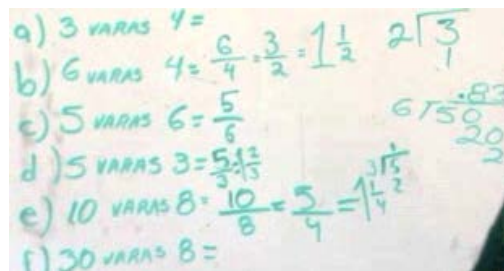 a) 3 VARAS 4=
b) 6 VARAS 4= 6/4 = 3/2 = 1 1/2
2)3
1
c) 5 VARAS 6= 5/6
6)50
.83
20
2
d) 5 VARAS 3= 5/3 = 1 2/3
3)5
1
2
e) 10 VARAS 8= 10/8 = 5/4 = 1 1/4
f) 30 VARAS 8=